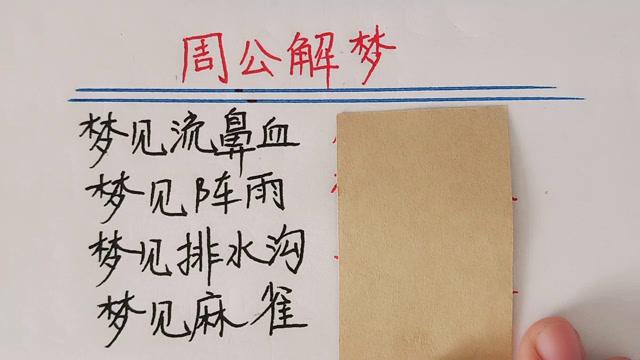 周公解梦
梦见流鼻血
梦见阵雨
梦见排水沟
梦见麻雀